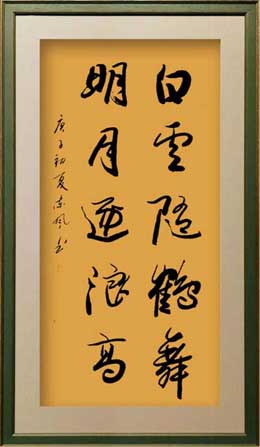 白雲随鶴舞
明月逐浪高
庚子初夏书